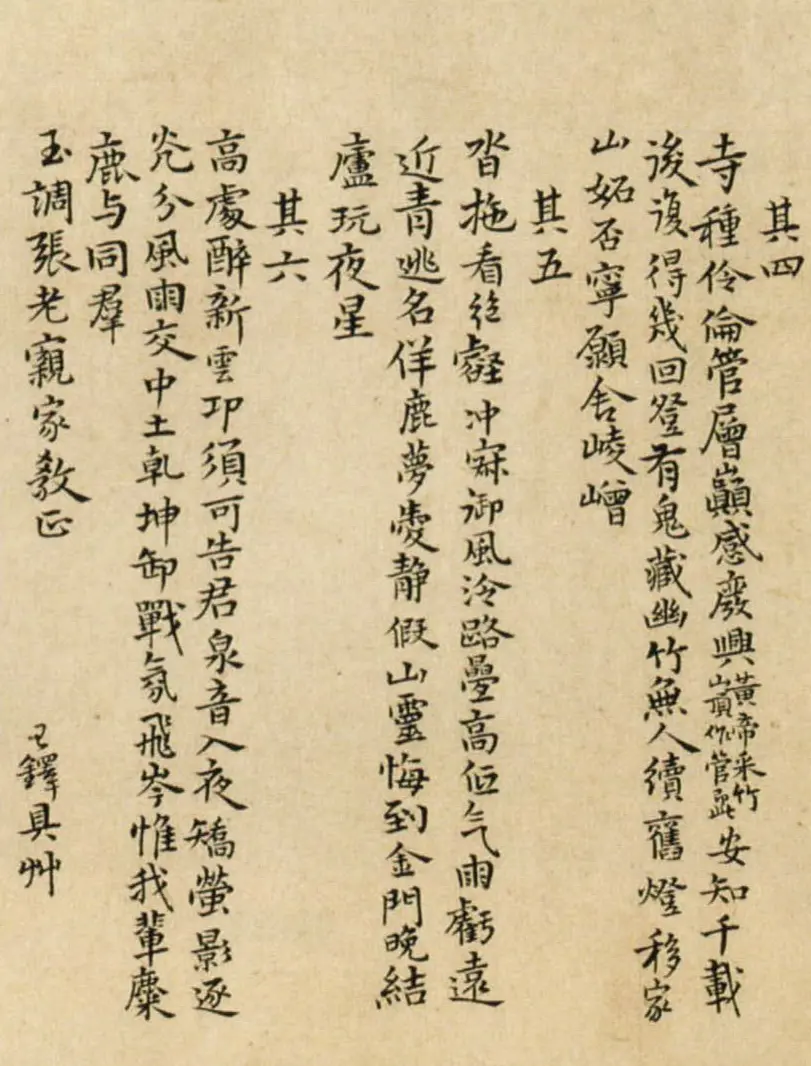 其四
寺種伶倫管層巔感廢興黃帝采竹山頂作管處安知千載
後復得幾回登有鬼藏幽竹無人續舊燈移家
山妬否寧願舍崚嶒
其五
沓拖看絕壑沖寂御風泠路疊高低气雨虧遠
近青逃名佯鹿夢愛靜假山靈悔到金門晚結
廬玩夜星
其六
高處醉新雲卭須可告君泉音入夜矯螢影逐
炗分風雨交中土乹坤卸戰氛飛岑惟我輩麋
鹿与同羣
玉調張老親家教正
王鐸具艸